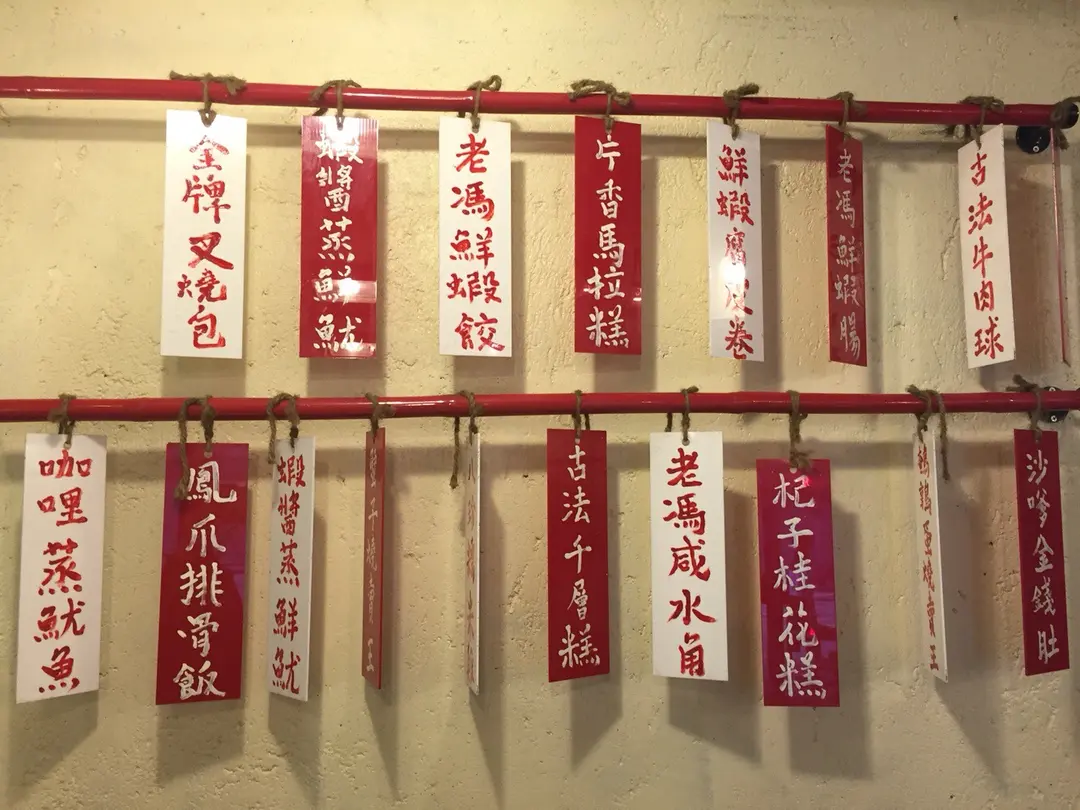 全牌叉燒包
蝦醬蒸鮮魷
老馮鮮蝦餃
片香馬拉糕
鮮蝦腐皮卷
老馮鮮蝦腸
古法牛肉球
咖哩蒸魷魚
鳳爪排骨飯
蝦醬蒸鮮魷
蟹子燒賣王
古法千層糕
老馮咸水角
杞子桂花糕
鵪鶉蛋燒賣王
沙嗲金錢肚